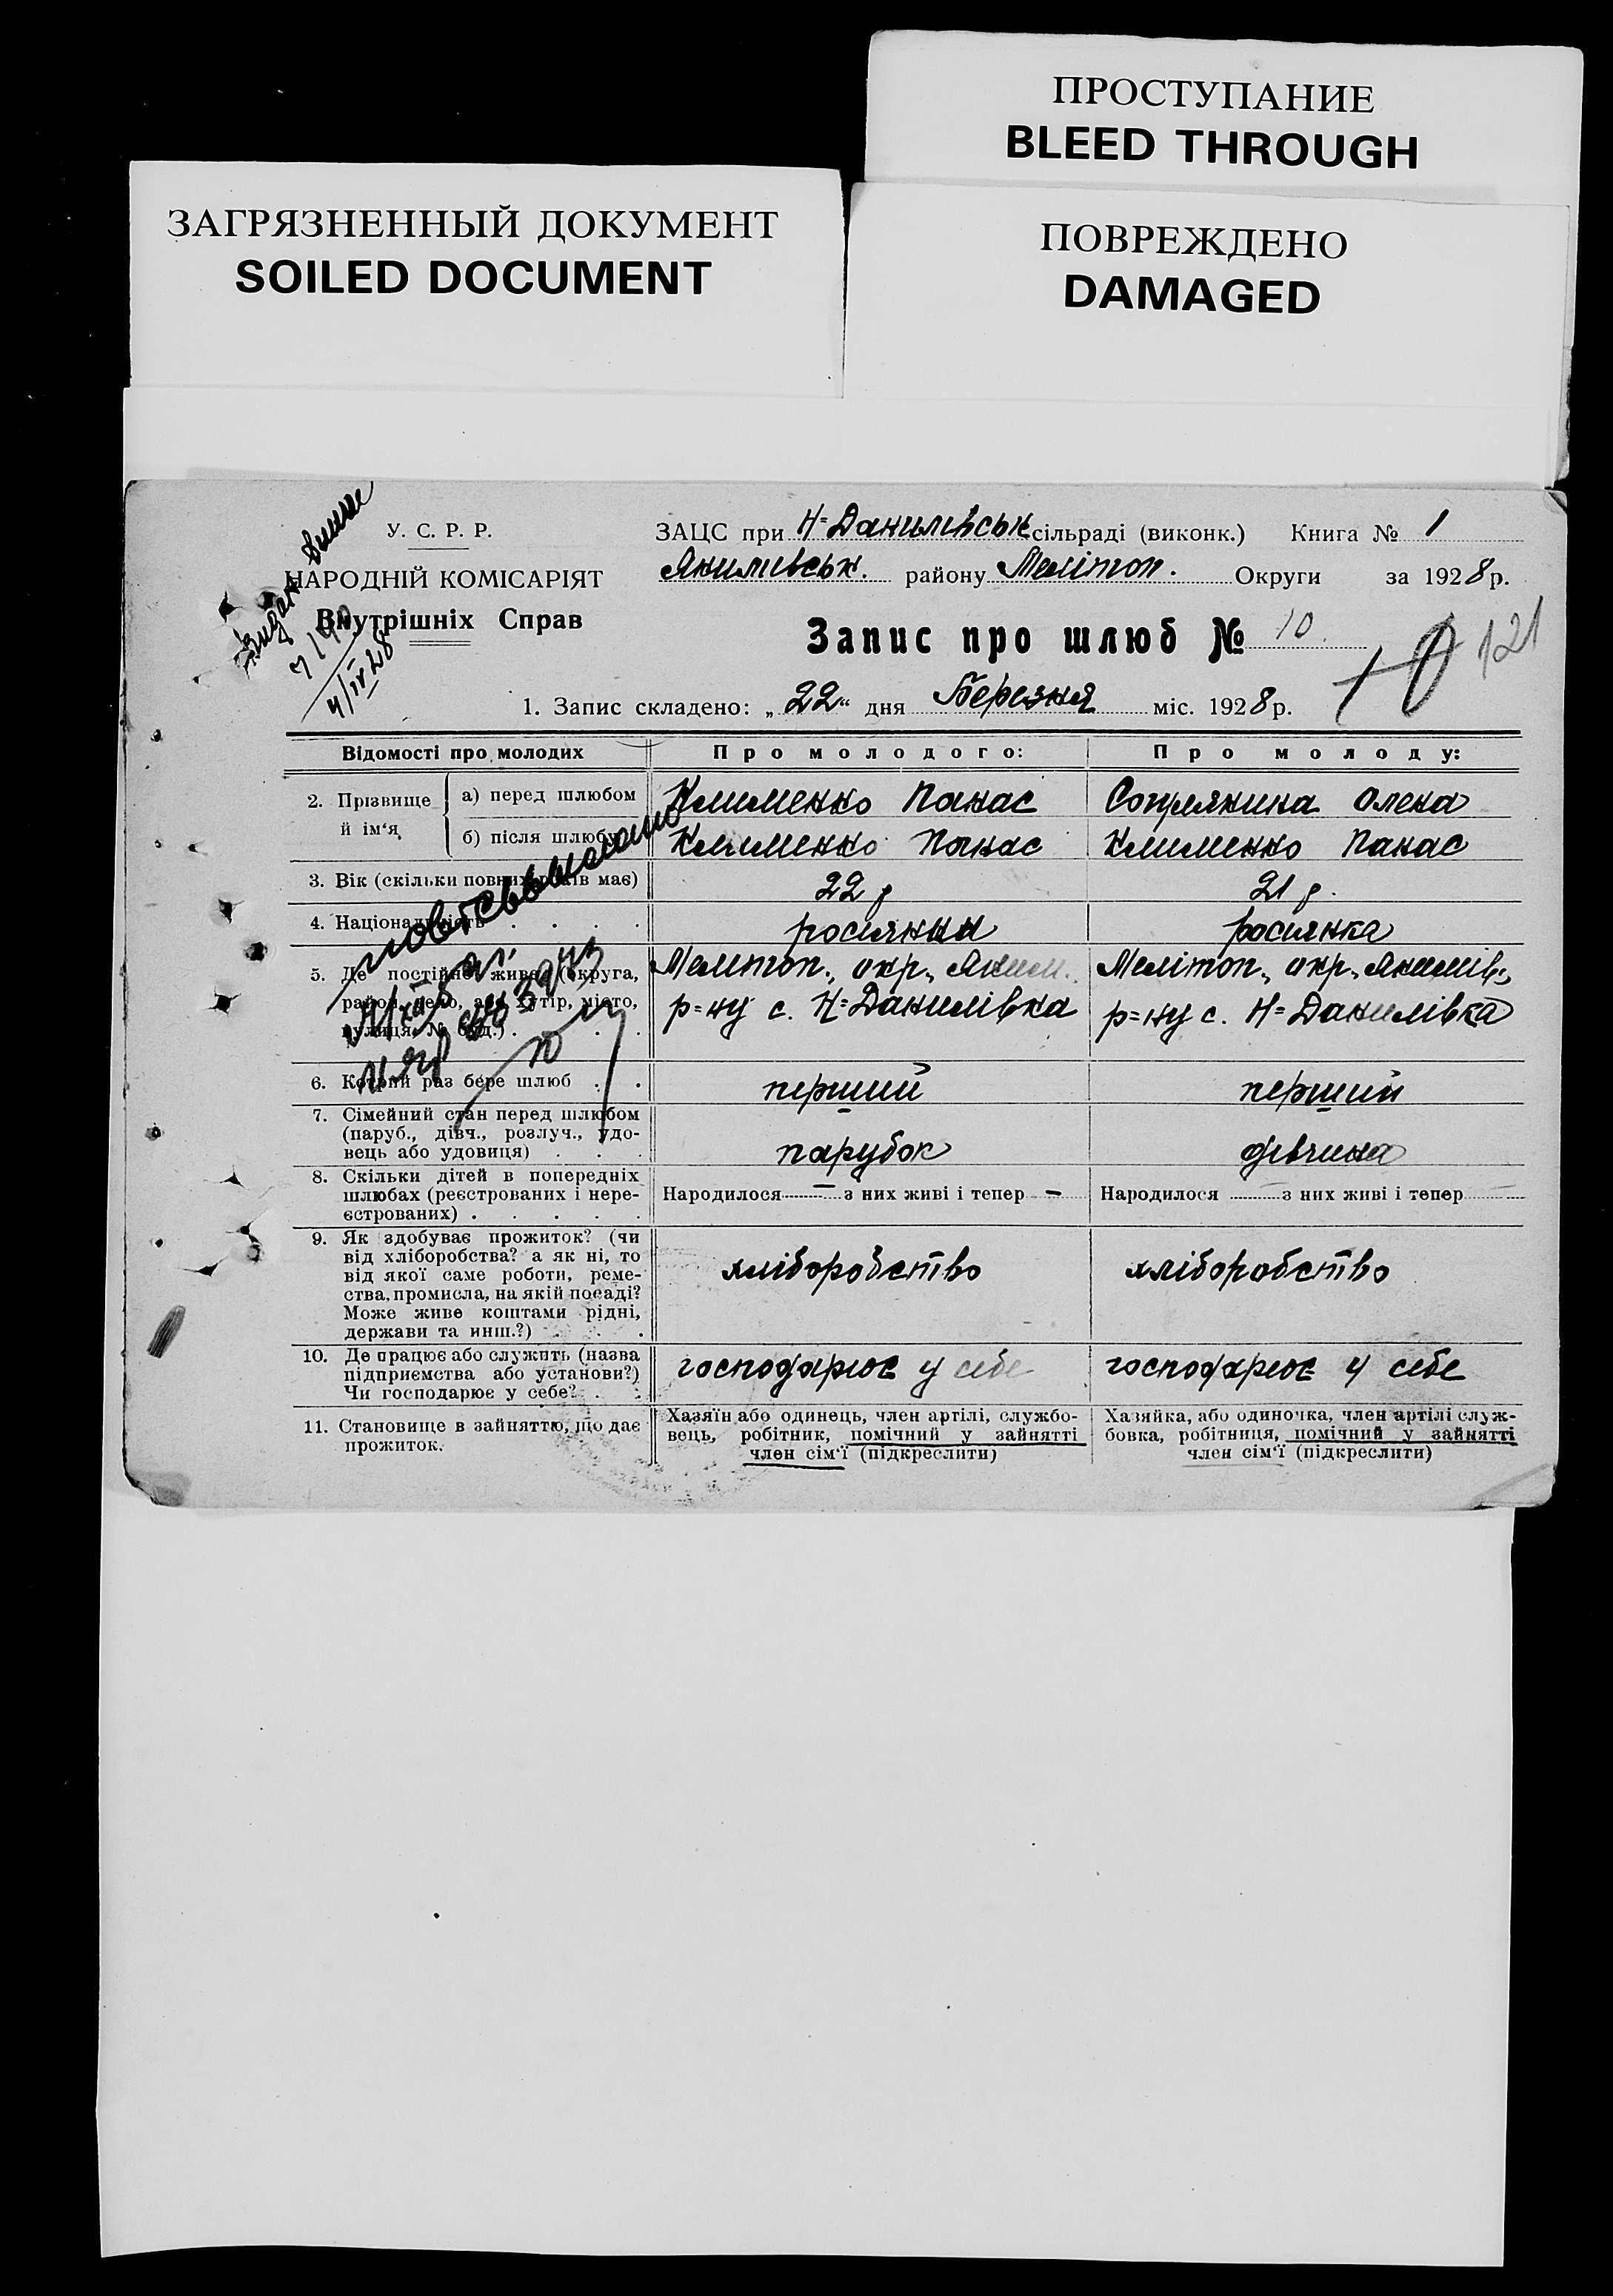 ПРОСТУПАНИЕ
BLEED THROUGH
ЗАГРЯЗНЕННЫЙ ДОКУМЕНТ
SOILED DOCUMENT
ПОВРЕЖДЕНО
DAMAGED
У. С. Р. Р.
НАРОДНІЙ КОМІСАРІЯТ
Внутрішніх Справ
4/IV 28
ЗАЦС при Н=Данилівськ сільраді (виконк.) Книга № 1
Якимівськ. району Меліноп. Округи за 1928 р.
Запис про шлюб № 10
121
1. Запис складено: „22“ дня Березня міс. 1928 р.
Відомості про молодих Про молодого: Про молоду:
2. Прізвище й ім‘я
а) перед шлюбом Клименко Панас
б) після шлюбу Клименко Панас Клименко Панас
3. Вік (скільки повних років має) 22 р 21 р.
4. Національність . . . . росіянин росіянка
5. Де постійно живе (округа, Мелітоп., окр., Яким. Мелітоп., окр., Якимів.,
район, село, або хутір, місто, р=ну с. Н=Данилівка р=ну с. Н=Данилівка
вулиця, № буд.) . . . .
6. Котрий раз бере шлюб . . перший перший
7. Сімейний стан перед шлюбом
(паруб., дівч., розлуч., удо-
вець або удовиця) . . . парубок дівчина
8. Скільки дітей в попередніх
шлюбах (реєстрованих і нере- Народилося — з них живі і тепер — Народилося — з них живі і тепер —
єстрованих) . . . . .
9. Як здобуває прожиток? (чи
від хліборобства? а як ні, то
від якої саме роботи, реме- хліборобство хліборобство
ства, промисла, на якій посаді?
Може живе коштами рідні,
держави та инш.?) . . .
10. Де працює або служить (назва
підприємства або установи?) господарює у себе господарює у себе
Чи господарює у себе? . .
11. Становище в зайняттю, що дає
прожиток.
Хазяїн або одинець, член артілі, службо-
вець, робітник, помічний у зайнятті
член сім‘ї (підкреслити)
Хазяйка, або одиночка, член артілі служ-
бовка, робітниця, помічний у зайнятті
член сім‘ї (підкреслити)